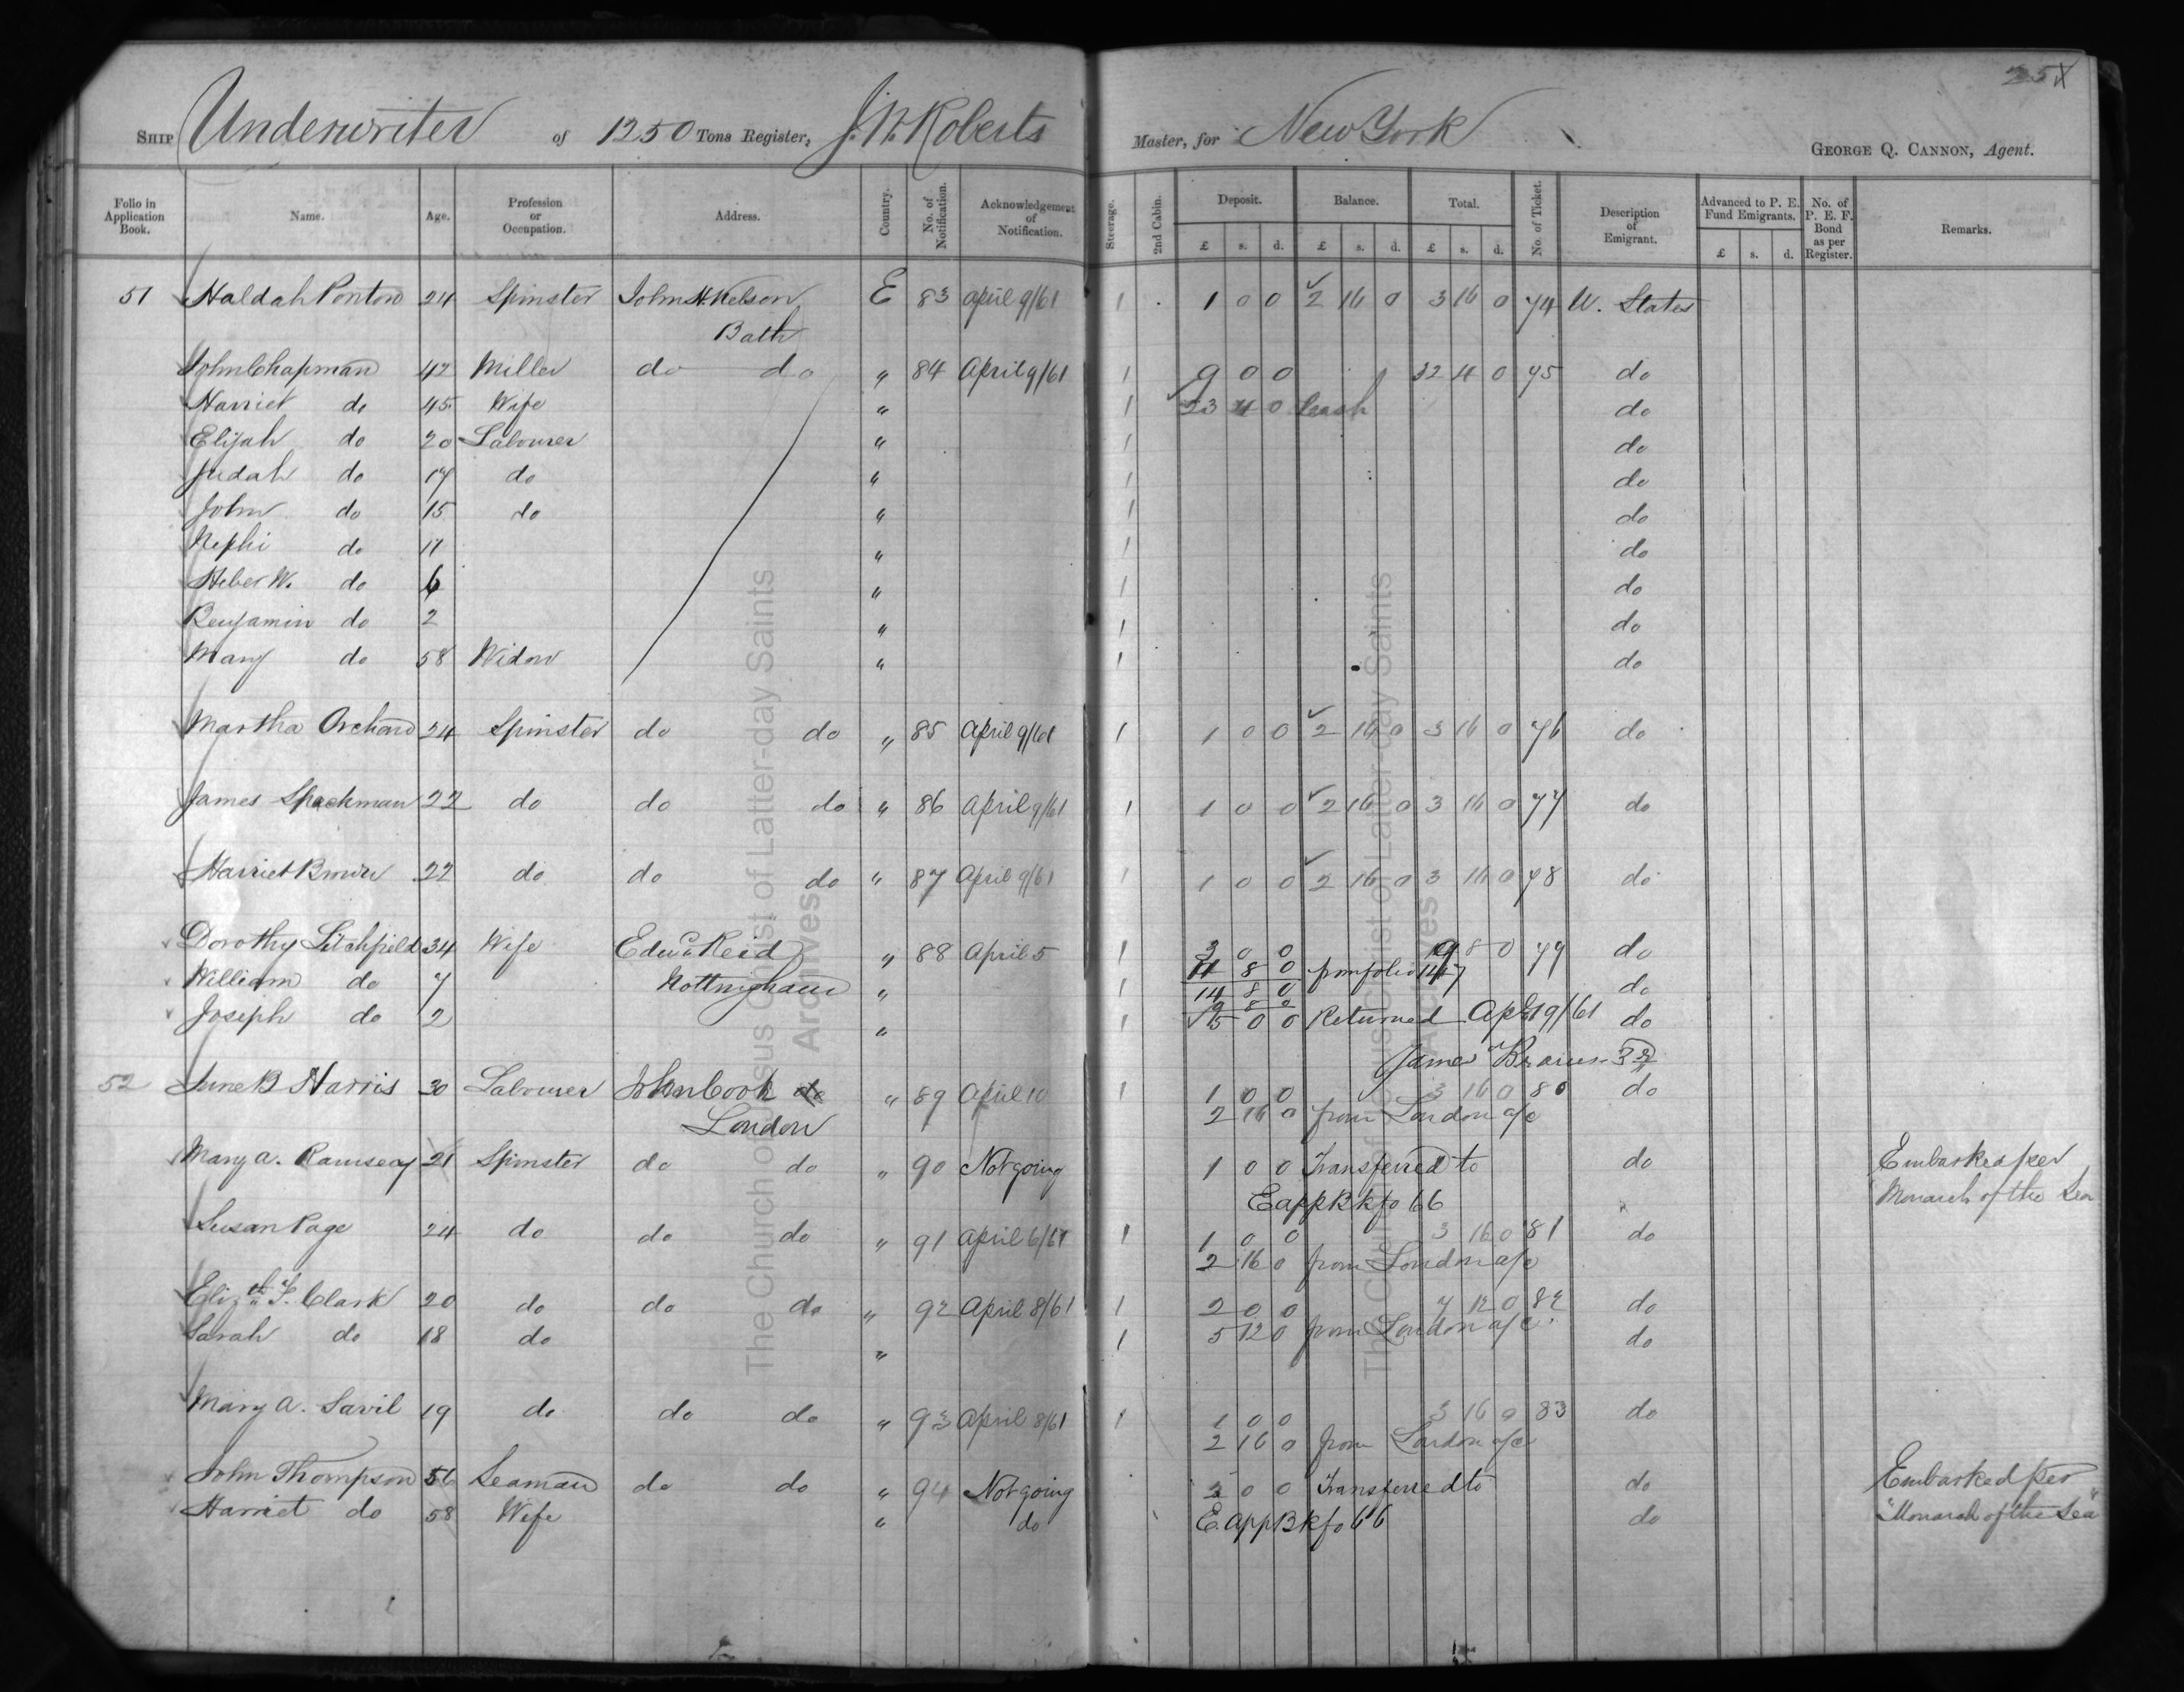 25
SHIP Underwriter of 1250 Tons Register, J.W. Roberts Master, for New York GEORGE Q. CANNON, Agent.
Folio in Application Book. Name. Age. Profession or Occupation. Address. Country. No. of Notification. Acknowledgement of Notification. Steerage. 2nd Cabin. Deposit. £ s. d. Balance. £ s. d. Total. £ s. d. No. of Ticket. Description of Emigrant. Advanced to P. E. Fund Emigrants. £ s. d. No. of P. E. F. Bond as per Register. Remarks.
51 Haldah Ponton 24 Spinster John Kelson E 83 April 9/61 1 1 0 0 2 16 0 3 16 0 74 U. States
Bath
John Chapman 42 Miller do do " 84 April 9/61 1 9 0 0 32 4 0 75 do
Harriet do 45 Wife " 1 23 4 0 Cash do
Elijah do 20 Labourer " 1 do
Judah do 17 do " 1 do
John do 15 do " 1 do
Nephi do 11 " 1 do
Heber W. do 6 " 1 do
Benjamin do 2 " 1 do
Mary do 58 Widow " 1 do
Martha Orchard 24 Spinster do do " 85 April 9/61 1 1 0 0 2 16 0 3 16 0 76 do
James Spackman 22 do do do " 86 April 9/61 1 1 0 0 2 16 0 3 16 0 77 do
Harriet Brown 22 do do do " 87 April 9/61 1 1 0 0 2 16 0 3 16 0 78 do
Dorothy Litchfield 34 Wife Edwd Reid " 88 April 5 1 3 0 0 9 8 0 79 do
William do 7 Nottingham " 1 11 8 0 from folio 147 do
14 8 0
9 8 0
Joseph do 2 " 1 5 0 0 Returned Apl 19/61 do
James
52 June B Harris 30 Labourer John Cook do " 89 April 10 1 1 0 0 3 16 0 80 do
London 2 16 0 from London a/c
Mary A. Ramsey 21 Spinster do do " 90 Not going 1 0 0 Transferred to do Embarked per
E app Bk fo 66 Monarch of the Sea
Susan Page 24 do do do " 91 April 6/61 1 1 0 0 3 16 0 81 do
2 16 0 from London a/c
Elizth F. Clark 20 do do do " 92 April 8/61 1 2 0 0 7 12 0 82 do
Sarah do 18 do " 1 5 12 0 from London a/c do
Mary A. Savil 19 do do do " 93 April 8/61 1 1 0 0 3 16 0 83 do
2 16 0 from London a/c
John Thompson 56 Seaman do do " 94 Not going 2 0 0 Transferred to do Embarked per
Harriet do 58 Wife " do E. app Bk fo 66 do "Monarch of the Sea"
The Church of Jesus Christ of Latter-day Saints
Archives
The Church of Jesus Christ of Latter-day Saints
Archives